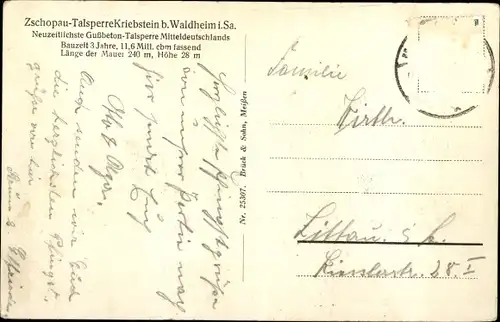 Zschopau-Talsperre Kriebstein b. Waldheim i. Sa.
Neuzeitlichste Gußbeton-Talsperre Mitteldeutschlands
Bauzeit 3 Jahre, 11,6 Mill. cbm fassend
Länge der Mauer 240 m, Höhe 28 m
Herzlichste Pfingstgrüße
von unser Partie nach
hier sendet Euch
Auch senden wir Euch
die herzlichsten Pfingst-
grüße von hier
Nr. 25307. Brück & Sohn, Meißen
Familie
Zittau i. Sa.
28 I